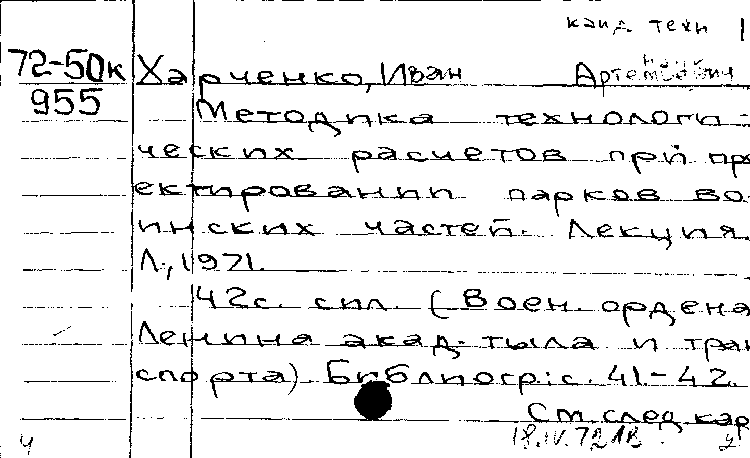 канд техн
72-50к Харченко, Иван Артемьевич
наук
955 Методика технологи-
ческих расчетов при про
ектировании парков во
инских частей. Лекция
Л., 1971.
42с. с ил. (Воен. ордена
Ленина акад. тыла и тран
спорта) Библиогр: с. 41-42.
См. след. кар
18.IV.72
ч